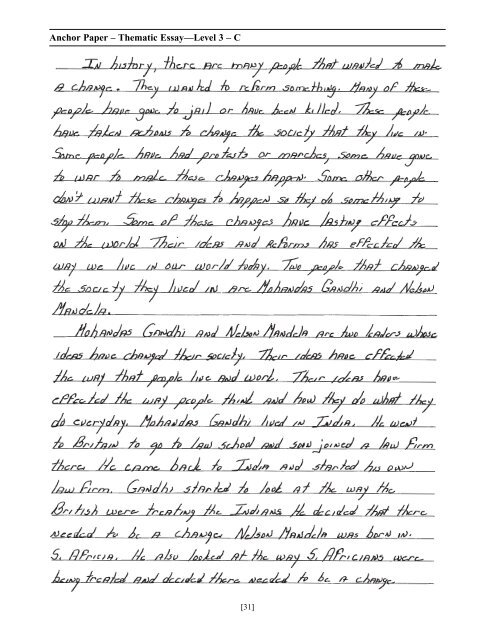 Anchor Paper – Thematic Essay—Level 3 – C
In history, there are many people that wanted to make
a change. They wanted to reform something. Many of these
people have gone to jail or have been killed. These people
have taken actions to change the society that they live in.
Some people have had protests or marches, some have gone
to war to make these changes happen. Some other people
don't want these changes to happen so they do something to
stop them. Some of these changes have lasting effects
on the world. Their ideas and reforms has effected the
way we live in our world today. Two people that changed
the society they lived in are Mohandas Gandhi and Nelson
Mandela.
Mohandas Gandhi and Nelson Mandela are two leaders whose
ideas have changed their society. Their ideas have effected
the way that people live and work. Their ideas have
effected the way people think and how they do what they
do everyday. Mohandas Gandhi lived in India. He went
to Britain to go to law school and soon joined a law firm
there. He came back to India and started his own
law firm. Gandhi started to look at the way the
British were treating the Indians. He decided that there
needed to be a change. Nelson Mandela was born in.
S. Africia. He also looked at the way S. Africians were
being treated and decided there needed to be a change.
[31]